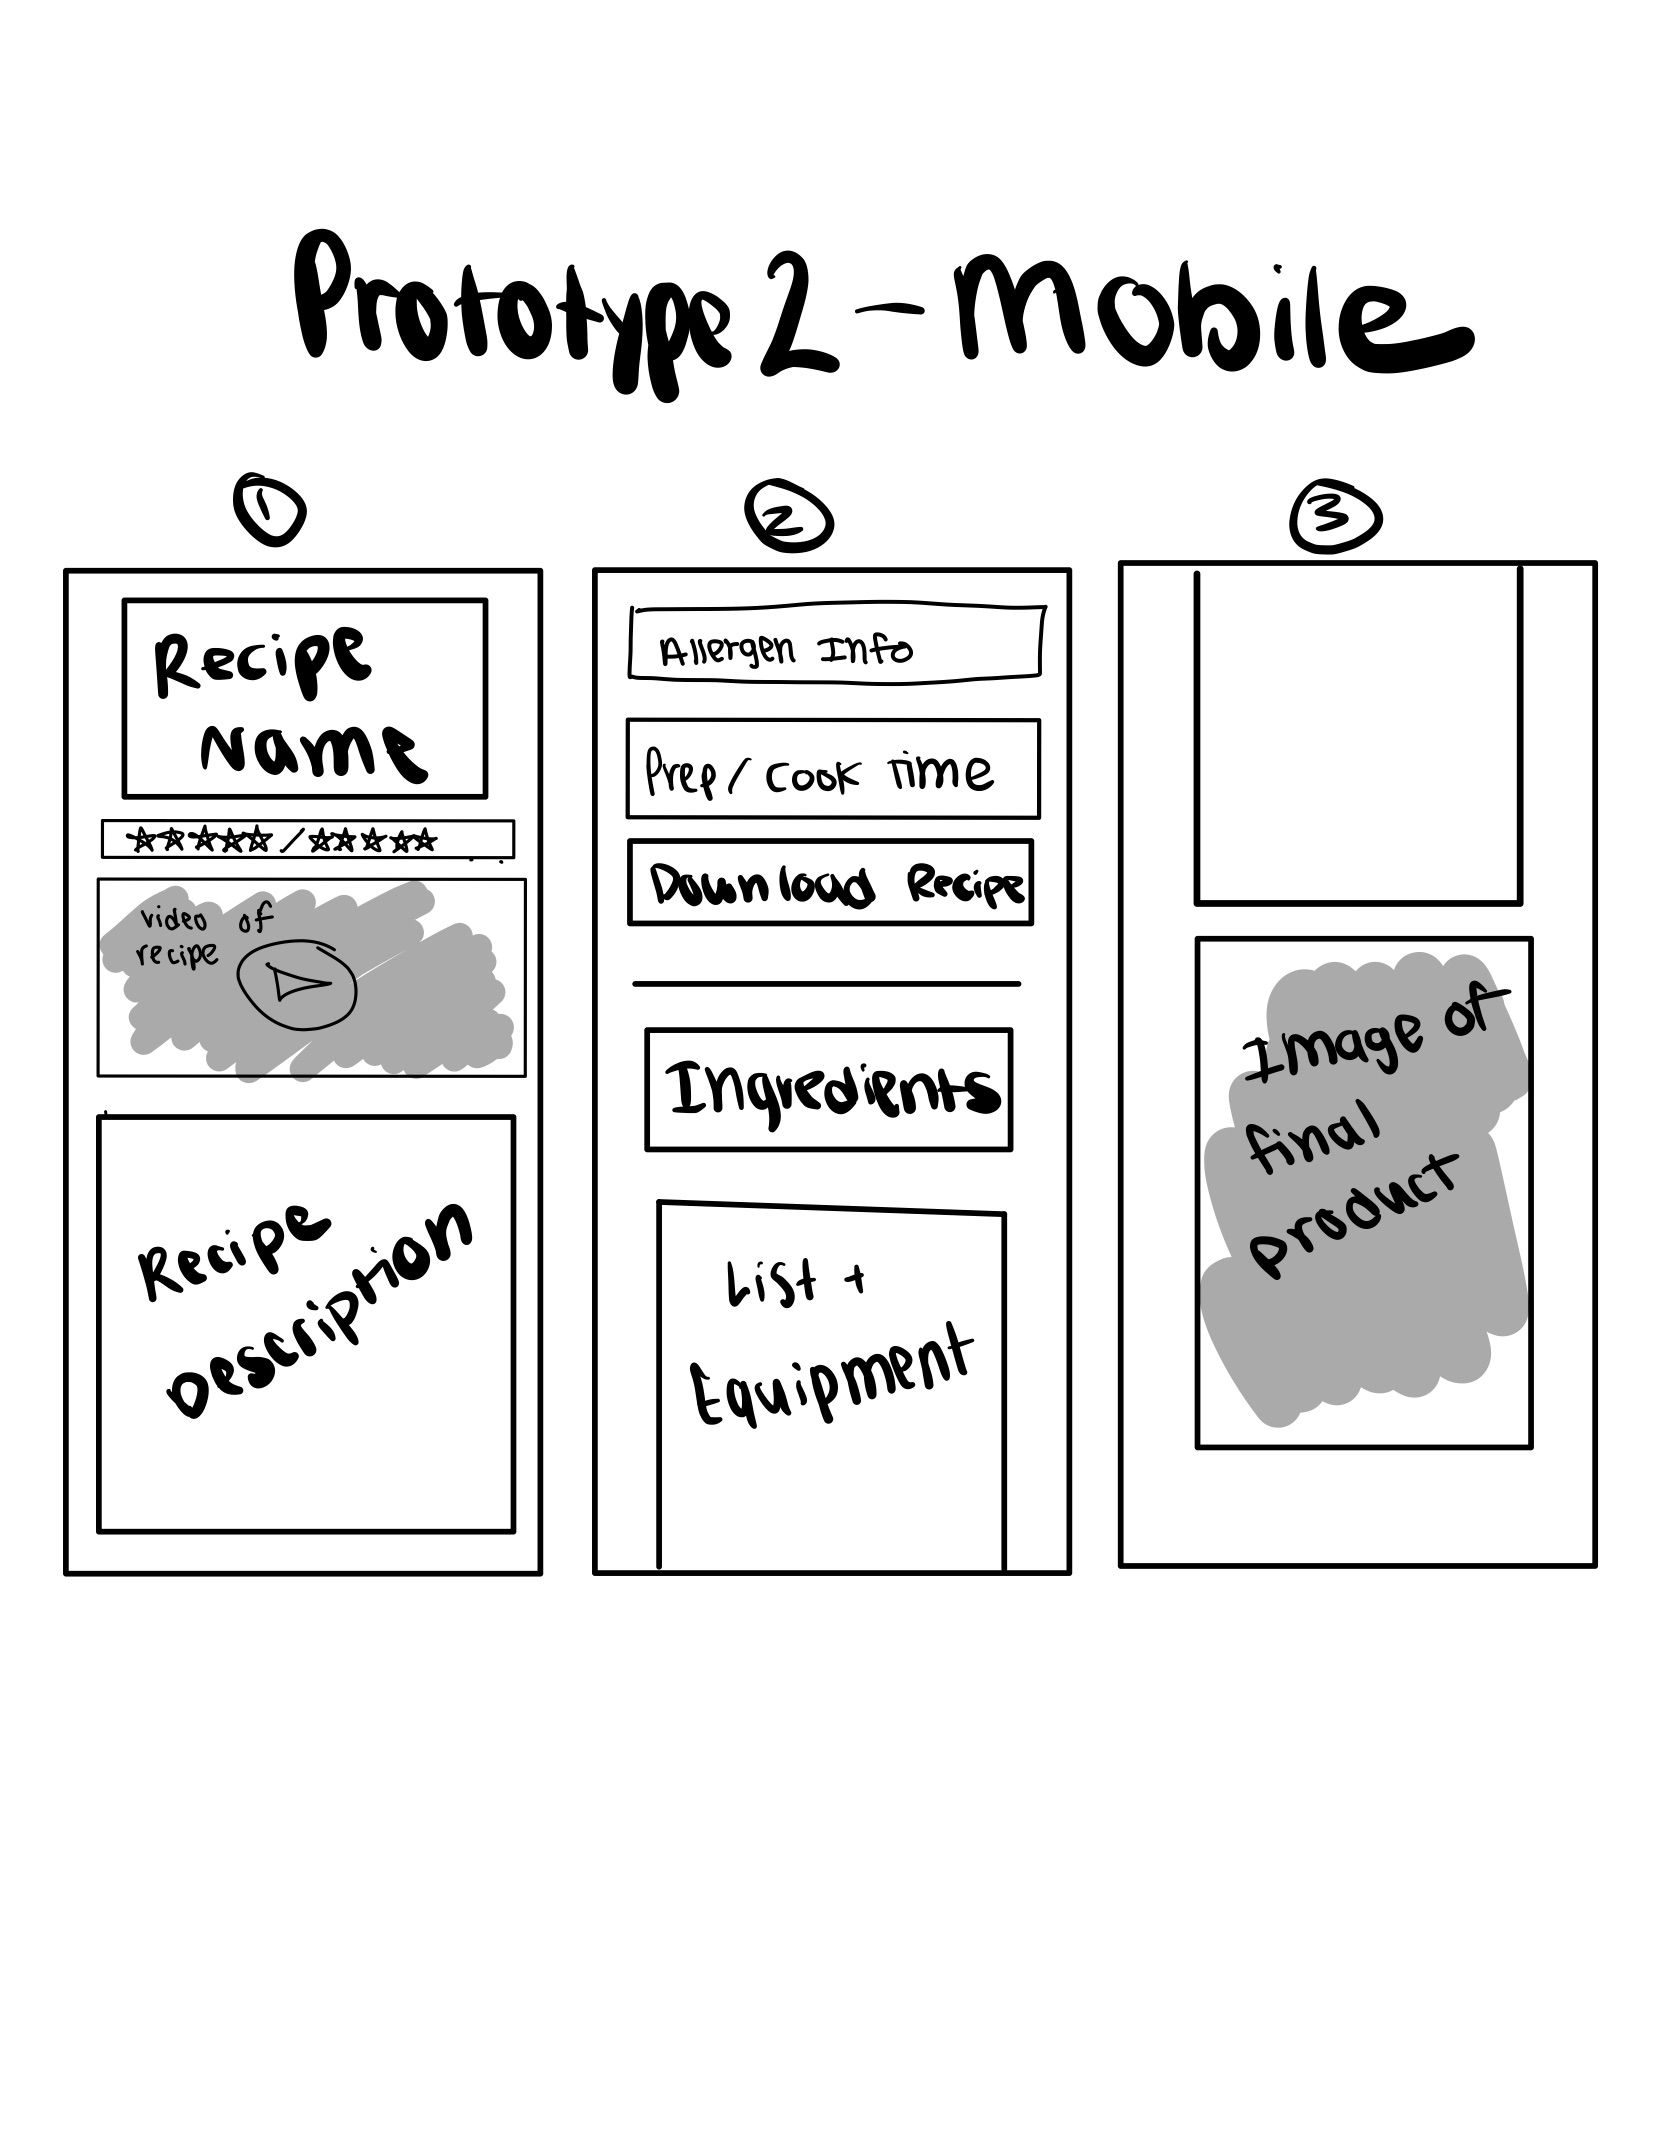 Prototype 2 - Mobile
1
2
3
Recipe
Name
☆☆☆☆☆/☆☆☆☆☆
video of
recipe
Recipe
Description
Allergen Info
Prep/Cook Time
Download Recipe
Ingredients
List +
Equipment
Image of
final
product